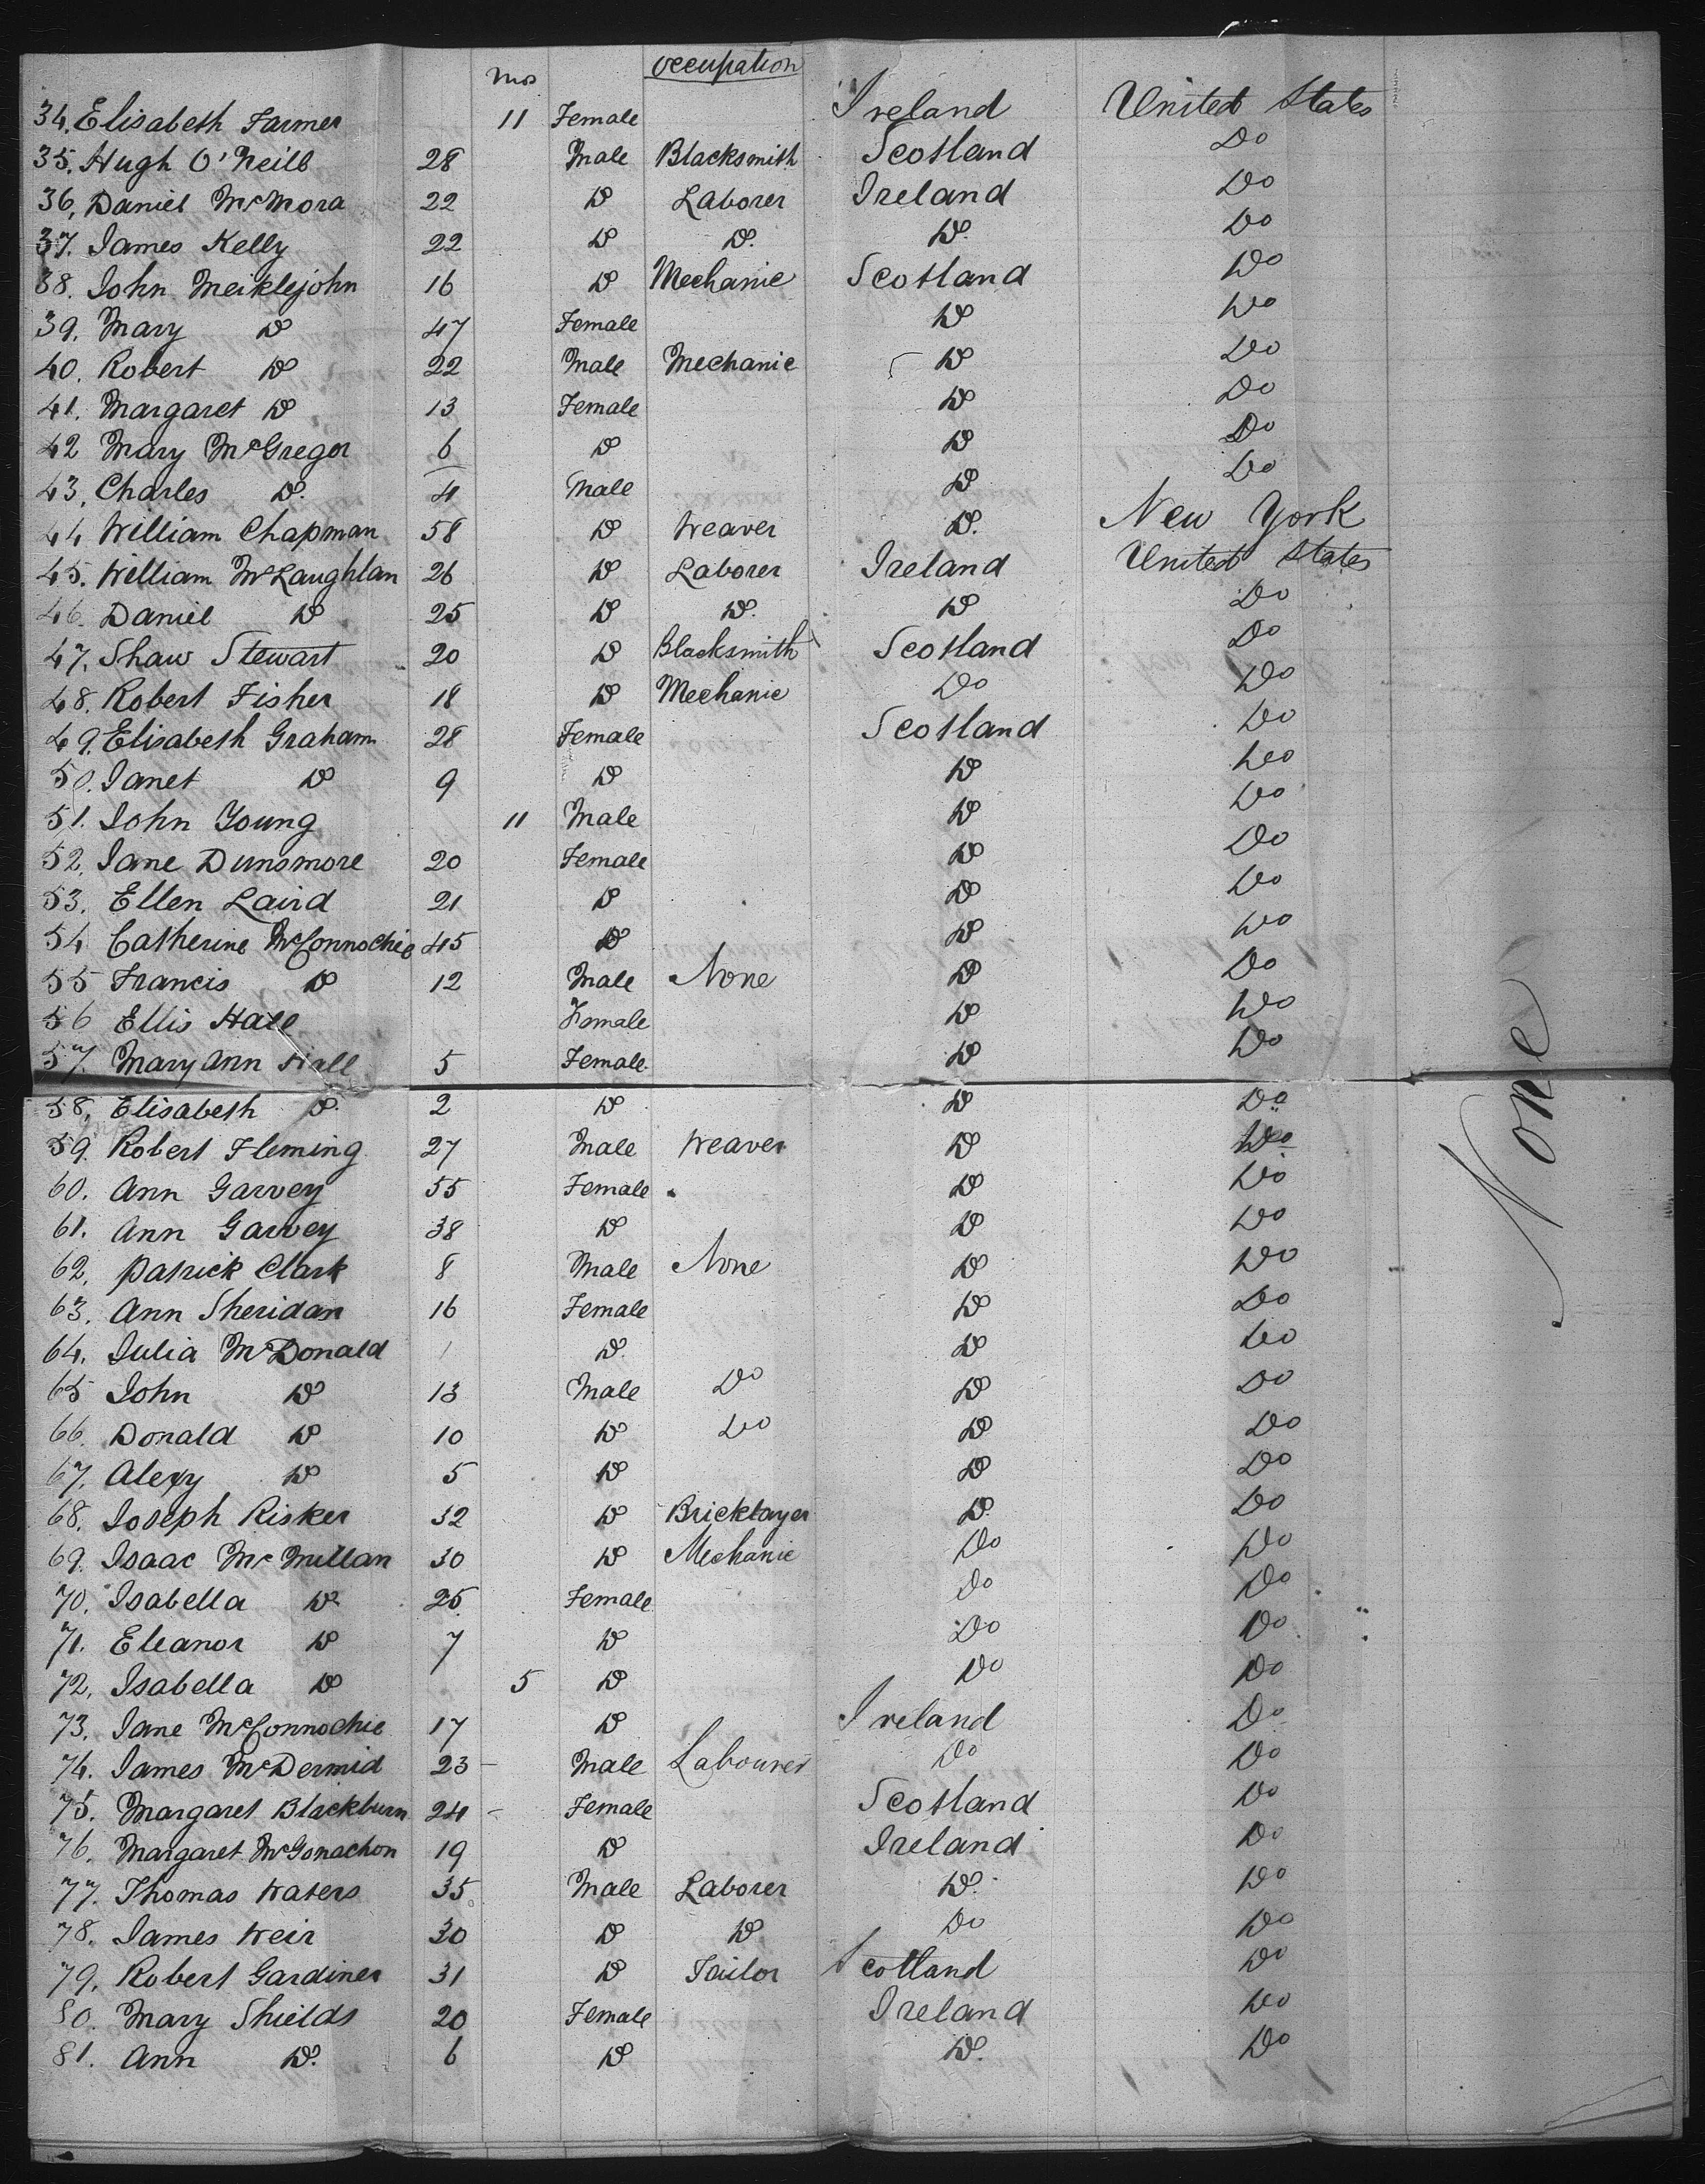 mos occupation
34. Elisabeth Farmer 11 Female Ireland United States
35. Hugh O'Neill 28 Male Blacksmith Scotland Do
36. Daniel McMora 22 Do Laborer Ireland Do
37. James Kelly 22 Do Do. Do. Do
38. John Meiklejohn 16 Do Mechanic Scotland Do
39. Mary Do 47 Female Do Do
40. Robert Do 22 Male Mechanic Do Do
41. Margaret Do 13 Female Do Do
42 Mary McGregor 6 Do Do Do
43. Charles Do. 4 Male Do Do
44 William Chapman 58 Do Weaver Do. New York
45. William McLaughlan 26 Do Laborer Ireland United States
46. Daniel Do 25 Do Do. Do Do
47. Shaw Stewart 20 Do Blacksmith Scotland Do
48. Robert Fisher 18 Do Mechanic Do Do
49. Elisabeth Graham 28 Female Scotland Do
50. Janet Do 9 Do Do Do
51. John Young 11 Male Do Do
52. Jane Dunsmore 20 Female Do Do
53. Ellen Laird 21 Do Do Do
54 Catherine McConnochie 45 Do Do Do
55 Francis Do 12 Male None Do Do
56 Ellis Hall Female Do Do
57. Mary Ann Hall 5 Female. Do Do
58. Elisabeth Do. 2 Do Do Do
59. Robert Fleming 27 Male Weaver Do Do
60. Ann Garvey 55 Female Do Do
61. Ann Garvey 38 Do Do Do
62. Patrick Clark 8 Male None Do Do
63. Ann Sheridan 16 Female Do Do
64. Julia McDonald 1 Do. Do Do
65 John Do 13 Male Do Do Do
66. Donald Do 10 Do Do Do Do
67. Alexy Do 5 Do Do Do
68. Joseph Risker 32 Do Bricklayer Do. Do
69. Isaac McMillan 30 Do Mechanic Do Do
70. Isabella Do 25 Female Do Do
71. Eleanor Do 7 Do Do Do
72. Isabella Do 5 Do Do Do
73. Jane McConnochie 17 Do Ireland Do
74. James McDermid 23 Male Labourer Do Do
75. Margaret Blackburn 24 Female Scotland Do
76. Margaret McGonachon 19 Do Ireland Do
77. Thomas Waters 35 Male Laborer Do. Do
78. James Weir 30 Do Do Do Do
79. Robert Gardiner 31 Do Tailor Scotland Do
80. Mary Shields 20 Female Ireland Do
81. Ann Do. 6 Do Do. Do
None